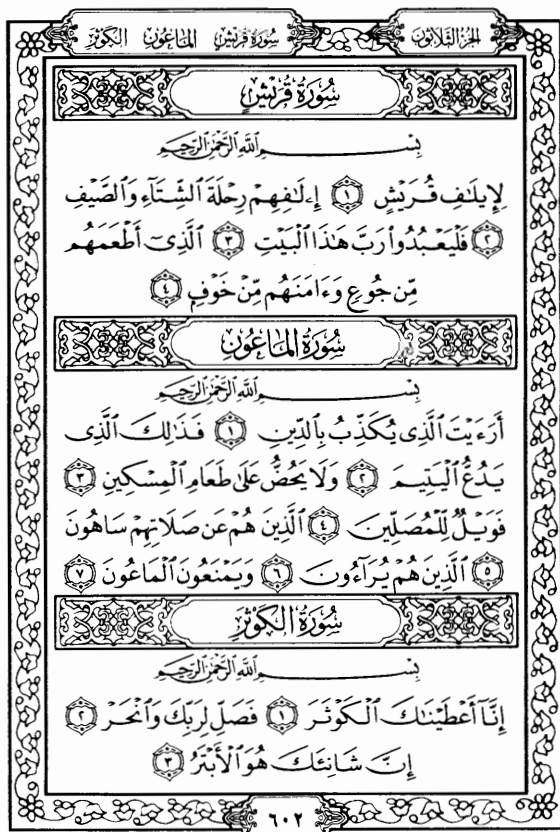 سُورَةُ قُرَيْشٍ المَاعُونِ الكَوْثَرِ
الجُزْءُ الثَّلَاثُونَ
سُورَةُ قُرَيْشٍ
بِسْمِ ٱللَّهِ ٱلرَّحْمَٰنِ ٱلرَّحِيمِ
لِإِيلَٰفِ قُرَيْشٍ ١ إِۦلَٰفِهِمْ رِحْلَةَ ٱلشِّتَآءِ وَٱلصَّيْفِ
٢ فَلْيَعْبُدُوا۟ رَبَّ هَٰذَا ٱلْبَيْتِ ٣ ٱلَّذِىٓ أَطْعَمَهُم
مِّن جُوعٍ وَءَامَنَهُم مِّنْ خَوْفٍۭ ٤
سُورَةُ المَاعُونِ
بِسْمِ ٱللَّهِ ٱلرَّحْمَٰنِ ٱلرَّحِيمِ
أَرَءَيْتَ ٱلَّذِى يُكَذِّبُ بِٱلدِّينِ ١ فَذَٰلِكَ ٱلَّذِى
يَدُعُّ ٱلْيَتِيمَ ٢ وَلَا يَحُضُّ عَلَىٰ طَعَامِ ٱلْمِسْكِينِ ٣
فَوَيْلٌ لِّلْمُصَلِّينَ ٤ ٱلَّذِينَ هُمْ عَن صَلَاتِهِمْ سَاهُونَ
٥ ٱلَّذِينَ هُمْ يُرَآءُونَ ٦ وَيَمْنَعُونَ ٱلْمَاعُونَ ٧
سُورَةُ الكَوْثَرِ
بِسْمِ ٱللَّهِ ٱلرَّحْمَٰنِ ٱلرَّحِيمِ
إِنَّآ أَعْطَيْنَٰكَ ٱلْكَوْثَرَ ١ فَصَلِّ لِرَبِّكَ وَٱنْحَرْ ٢
إِنَّ شَانِئَكَ هُوَ ٱلْأَبْتَرُ ٣
٦٠٢